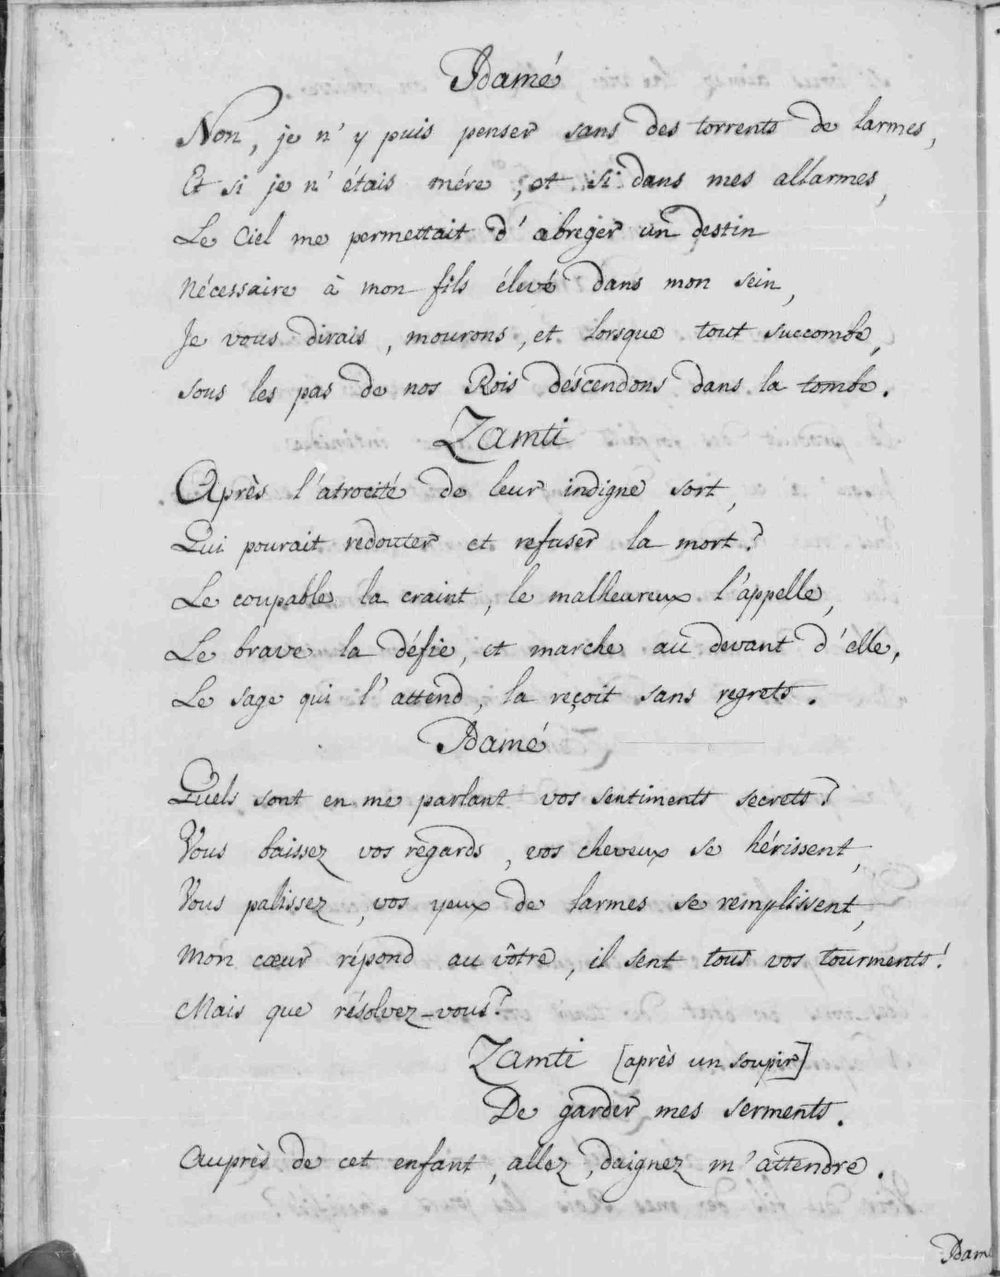 Idamé
Non, je n'y puis penser sans des torrents de larmes,
Et si je n'étais mére, et si dans mes allarmes,
Le Ciel me permettait d'abreger un destin
Nécessaire à mon fils élevé dans mon sein,
Je vous dirais, mourons, et lorsque tout succombe,
sous les pas de nos Rois déscendons dans la tombe.
Zamti
Après l'atrocité de leur indigne sort,
Qui pourait redouter et refuser la mort?
Le coupable la craint, le malheureux l'appelle,
Le brave la défie, et marche au devant d'elle,
Le sage qui l'attend, la reçoit sans regrets.
Idamé
Quels sont en me parlant vos sentiments secrets?
Vous baissez vos regards, vos cheveux se hérissent,
Vous palissez, vos yeux de larmes se remplissent,
Mon cœur répond au vôtre, il sent tous vos tourments!
Mais que résolvez-vous?
Zamti [après un soupir]
De garder mes serments.
Auprès de cet enfant, allez, daignez m'attendre.
Idamé